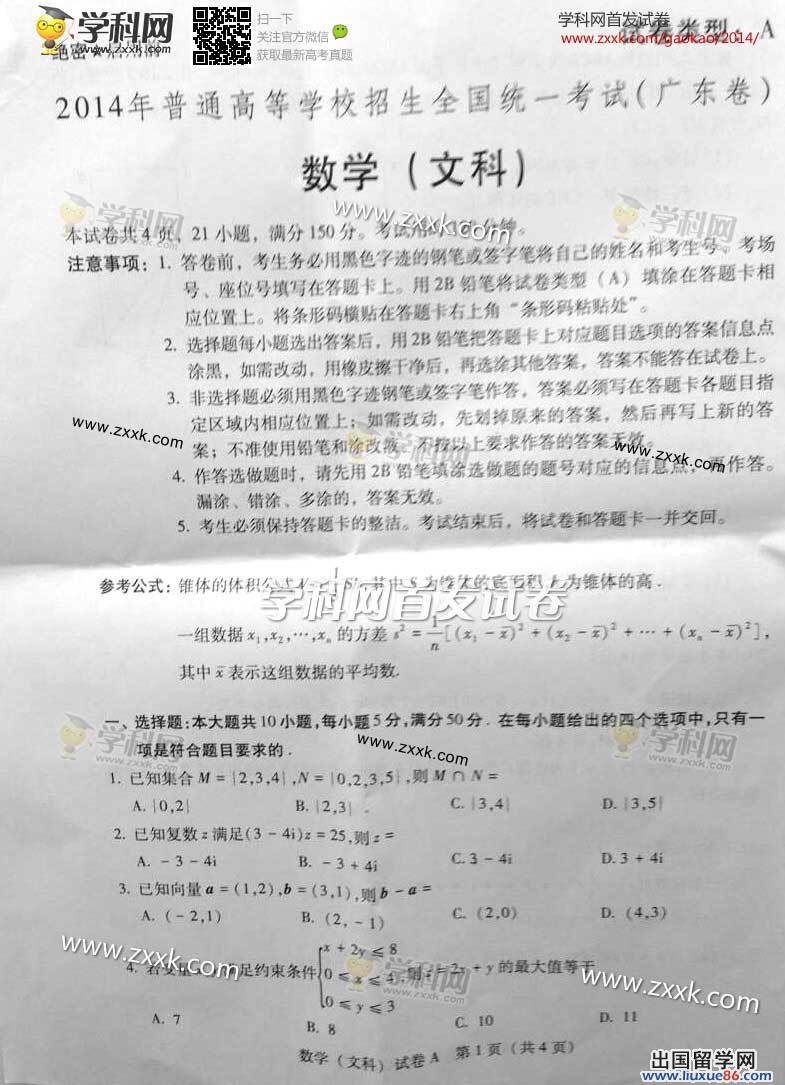 学科网
www.zxxk.com
扫一下
关注官方微信
获取最新高考真题
学科网首发试卷
www.zxxk.com/gaokao/2014/
试卷类型：A
绝密★启用前
2014年普通高等学校招生全国统一考试(广东卷)
数学(文科)
学科网
www.zxxk.com
学科网
本试卷共4页，21小题，满分150分。考试用时 分钟。
注意事项：1. 答卷前，考生务必用黑色字迹的钢笔或签字笔将自己的姓名和考生号、考场
号、座位号填写在答题卡上。用2B铅笔将试卷类型（A）填涂在答题卡相
应位置上。将条形码横贴在答题卡右上角“条形码粘贴处”。
2. 选择题每小题选出答案后，用2B铅笔把答题卡上对应题目选项的答案信息点
涂黑，如需改动，用橡皮擦干净后，再选涂其他答案，答案不能答在试卷上。
3. 非选择题必须用黑色字迹钢笔或签字笔作答，答案必须写在答题卡各题目指
定区域内相应位置上；如需改动，先划掉原来的答案，然后再写上新的答
案；不准使用铅笔和涂改液。不按以上要求作答的答案无效。
www.zxxk.com
学科网
www.zxxk.com
4. 作答选做题时，请先用2B铅笔填涂选做题的题号对应的信息点，再作答。
漏涂、错涂、多涂的，答案无效。
5. 考生必须保持答题卡的整洁。考试结束后，将试卷和答题卡一并交回。
参考公式：锥体的体积公式 其中S为锥体的底面积 为锥体的高.
学科网首发试卷
一组数据x₁,x₂,…,xₙ的方差s²=1/n[(x₁-x̄)²+(x₂-x̄)²+…+(xₙ-x̄)²],
其中x̄表示这组数据的平均数.
一、选择题：本大题共10小题，每小题5分，满分50分．在每小题给出的四个选项中，只有一
项是符合题目要求的．
学科网
www.zxxk.com
学科网
1. 已知集合M={2,3,4},N={0,2,3,5},则M∩N=
A. {0,2} B. {2,3} C. {3,4} D. {3,5}
2. 已知复数z满足(3-4i)z=25,则z=
A. -3-4i B. -3+4i C. 3-4i D. 3+4i
3. 已知向量a=(1,2),b=(3,1),则b-a=
A. (-2,1) B. (2,-1) C. (2,0) D. (4,3)
www.zxxk.com
学科网
www.zxxk.com
x+2y≤8
4. 若变量 足约束条件 0≤x≤4,则z=2x+y的最大值等于
0≤y≤3
A. 7 B. 8 C. 10 D. 11
数学（文科）试卷A 第1页（共4页）
出国留学网
www.liuxue86.com